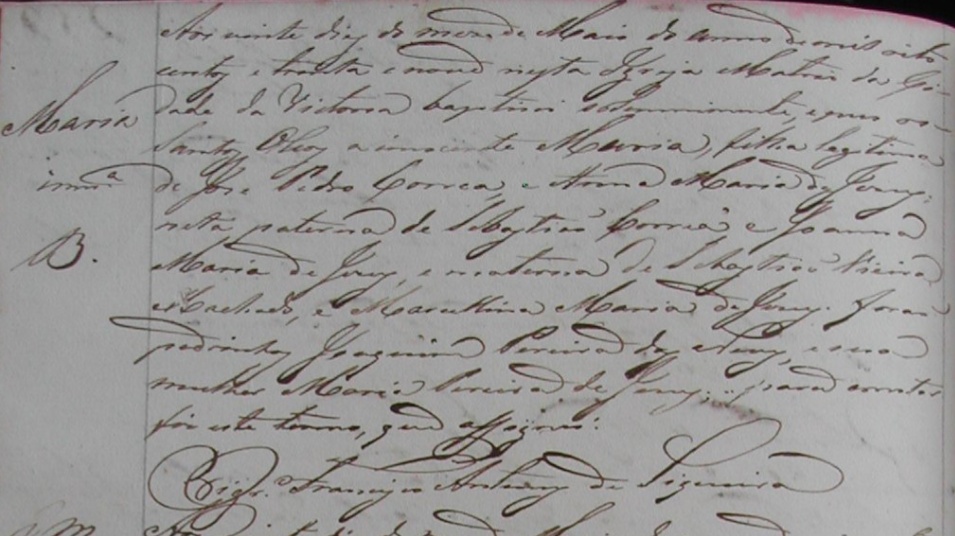 Aos vinte dias do mez de Maio do anno de mil oito
centos e trinta e nove nesta Igreja Matriz da Ci-
Maria
dade da Victoria baptisei solemnemente, e pus os
Santos Oleos a innocente Maria, filha legitima
innᵃ
de José Pedro Correa, e Anna Maria de Jesus,
neta paterna de Sebastião Correia e Joanna
B.
Maria de Jesus, e materna de Sebastião Vieira
Machado, e Marcellina Maria de Jesus. forão
padrinhos Joaquim Pereira das Neves, e sua
mulher Maria Pereira de Jesus, e para constar
fiz este termo, que assigno.
Vigrº. Francisco Antunes de Siqueira